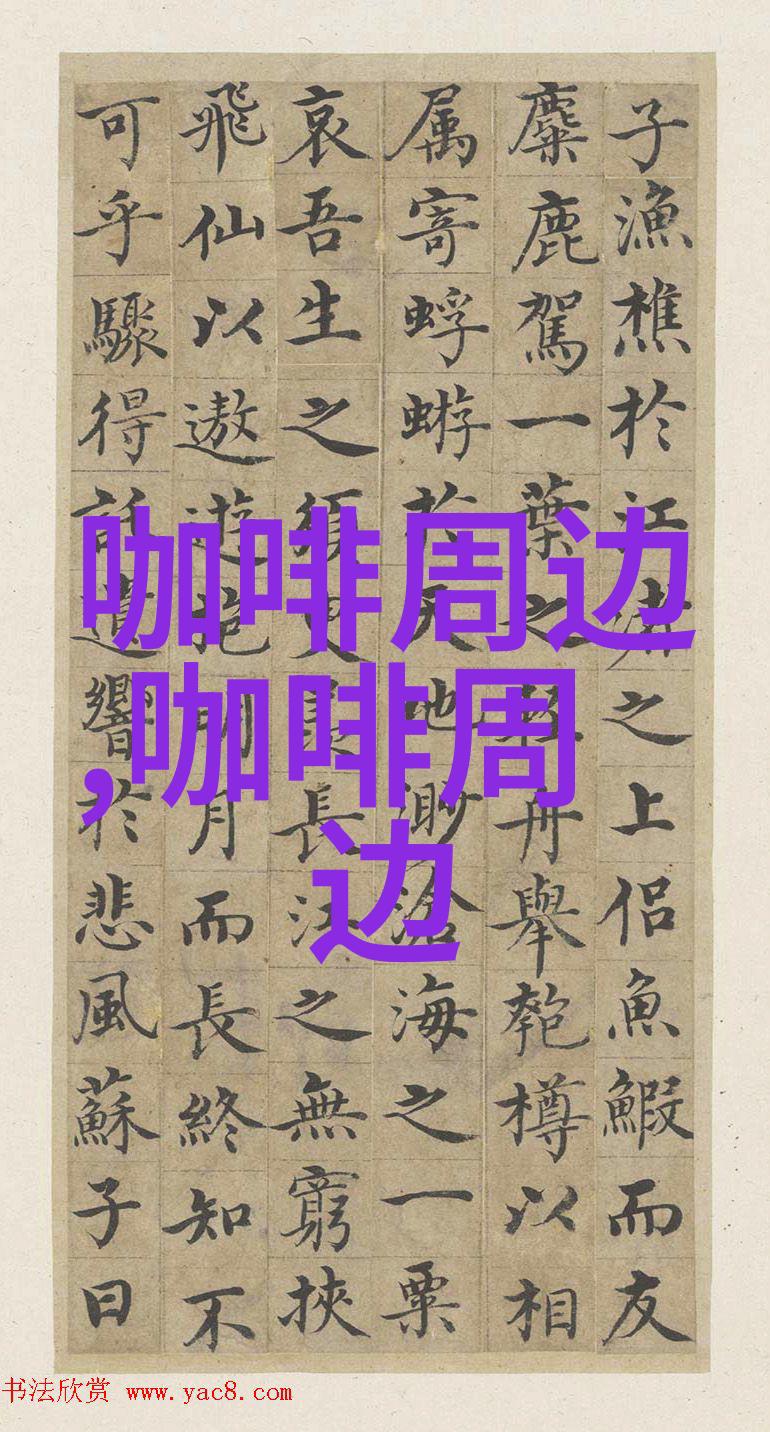 子漁樵於江渚之上侶魚鰕而友
麋鹿駕一葉之輕舟舉匏樽以相
属寄蜉蝣於天地渺滄海之一粟
哀吾生之須臾羨長江之無窮挾
飛仙以遨遊抱明月而長終知不
可乎驟得託遺響於悲風蘇子曰
咖啡周边
,咖啡周
边
书法欣赏 www.yac8.com